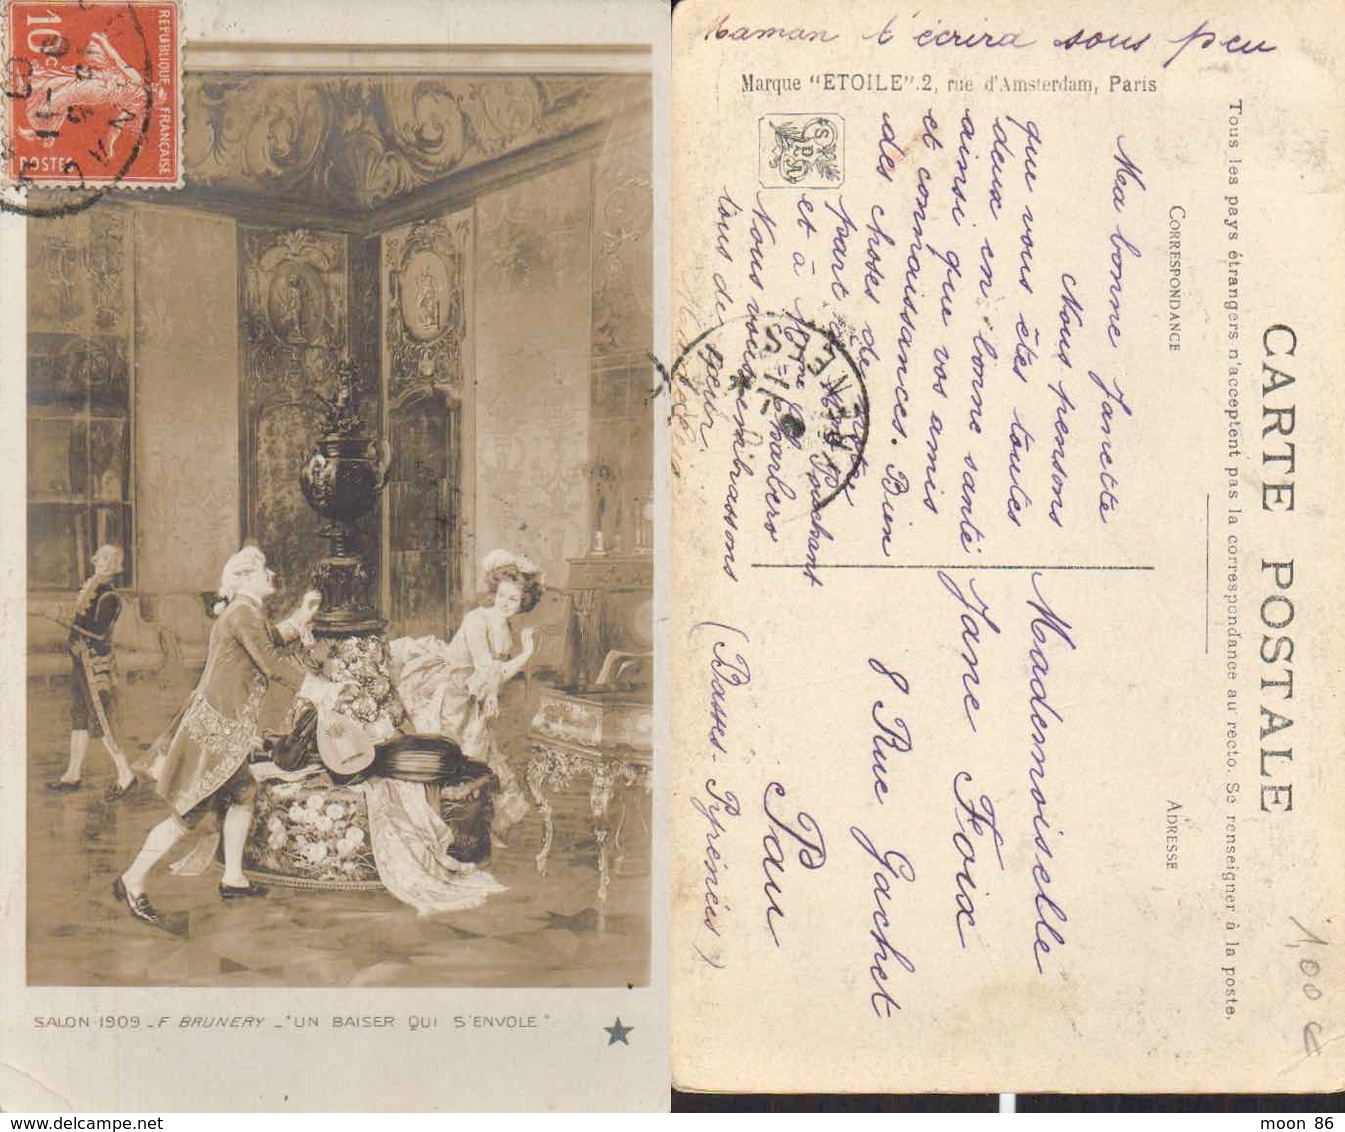 10c
REPUBLIQUE FRANCAISE
POSTES
SALON 1909 - F BRUNERY - "UN BAISER QUI S'ENVOLE"
Maman t'écrira sous peu
Marque "ETOILE".2, rue d'Amsterdam, Paris
CARTE POSTALE
Tous les pays étrangers n'acceptent pas la correspondance au recto. Se renseigner à la poste.
CORRESPONDANCE
ADRESSE
Ma bonne Janette
Nous pensons
que vous êtes toutes
deux en bonne santé
ainsi que vos amis
et connaissances. Bien
des choses de notre
part à Mme Ponchant
et à Mme
Nous vous embrassons
tous de cœur.
Mademoiselle
Jane Foix
8 Rue Gachet
Pau
(Basses-Pyrénées)
1,00 €
moon 86